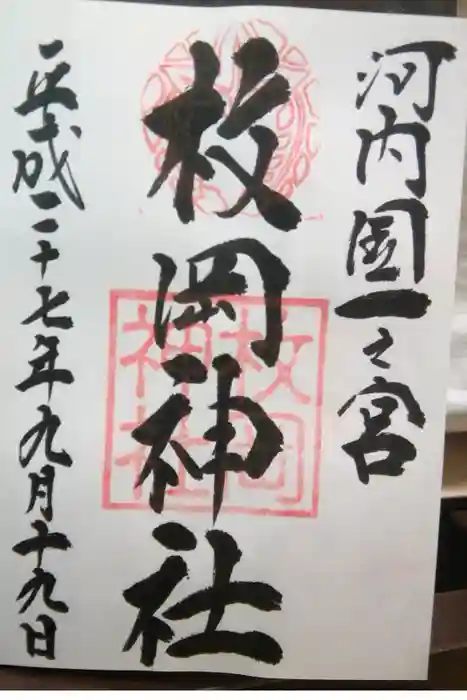 河内國一之宮
枚岡神社
枚岡
神社
平成二十七年九月十九日